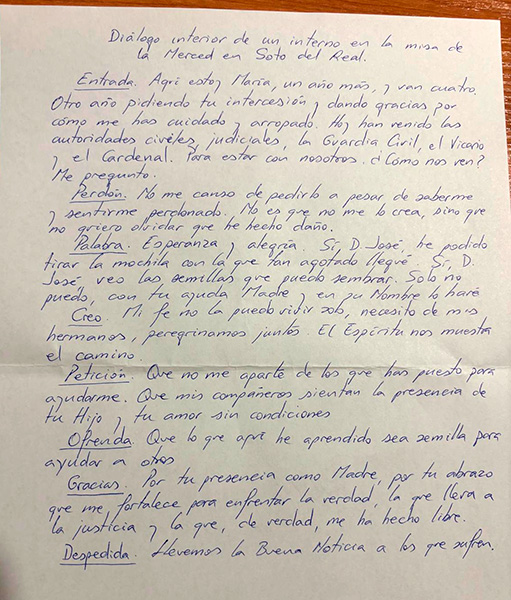 Diálogo interior de un interno en la misa de
la Merced en Soto del Real.
Entrada. Aquí estoy María, un año más, y van cuatro.
Otro año pidiendo tu intercesión y dando gracias por
cómo me has cuidado y arropado. Hoy han venido las
autoridades civiles, judiciales, la Guardia Civil, el Vicario
y el Cardenal. Para estar con nosotros. ¿Cómo nos ven?
Me pregunto.
Perdón. No me canso de pedirlo a pesar de saberme
y sentirme perdonado. No es que no me lo crea, sino que
no quiero olvidar que he hecho daño.
Palabra. Esperanza y alegría. Sí, D. José, he podido
tirar la mochila con la que tan agotado llegué. Sí, D.
José, veo las semillas que puedo sembrar. Solo no
puedo, con tu ayuda Madre y en su Nombre lo haré
Creo. Mi fe no la puedo vivir solo, necesito de mis
hermanos, peregrinamos juntos. El Espíritu nos muestra
el camino.
Petición. Que no me aparte de los que has puesto para
ayudarme. Que mis compañeros sientan la presencia de
tu Hijo y tu amor sin condiciones
Ofrenda Que lo que aquí he aprendido sea semilla para
ayudar a otros
Gracias. Por tu presencia como Madre, por tu abrazo
que me fortalece para enfrentar la verdad, la que lleva a
la justicia y la que, de verdad, me ha hecho libre.
Despedida. Llevemos la Buena Noticia a los que sufren.